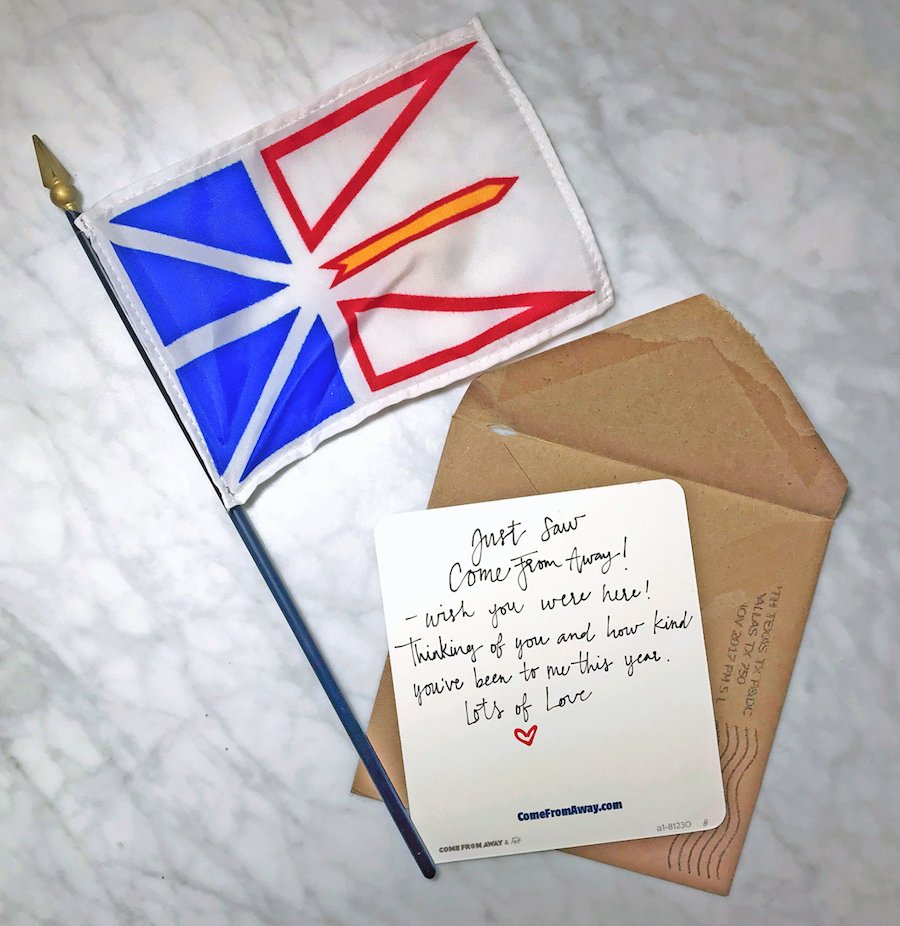 Just Saw
Come From Away!
- wish you were here!
Thinking of you and how kind
you've been to me this year.
Lots of Love
ComeFromAway.com
COME FROM AWAY & Felt
a1-81230
TX P&DC
TX 750
NOV 2017 PM 5 L